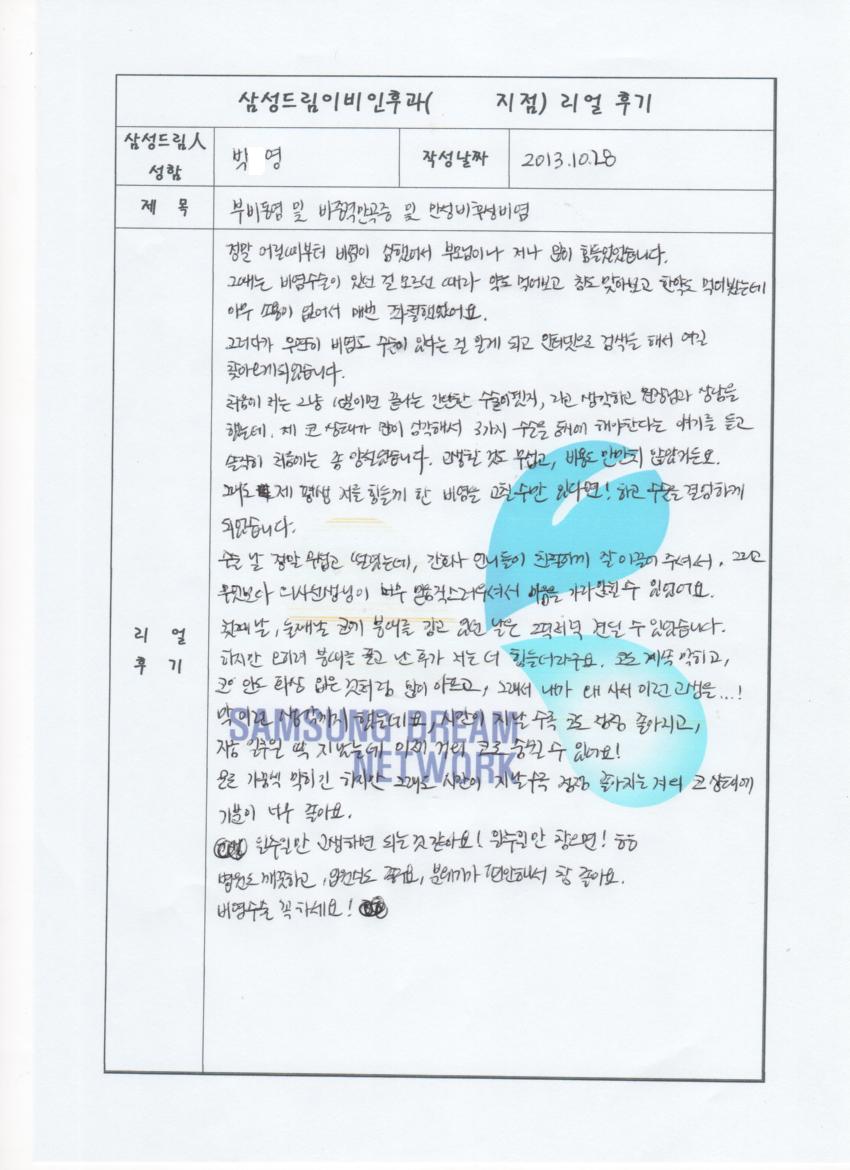 삼성드림이비인후과( 지점) 리얼 후기
삼성드림人 성함
박 영
작성날짜
2013.10.28
제 목
부비동염 및 비중격만곡증 및 만성비후성비염
리 얼 후 기
정말 어릴때부터 비염이 심했어서 부모님이나 저나 많이 힘들었었습니다.
그때는 비염수술이 있던 걸 모르던 때라 약도 먹어보고 침도 맞아보고 한약도 먹어봤는데
아무 소용이 없어서 매번 좌절했었어요.
그러다가 우연히 비염도 수술이 있다는 걸 알게 되고 인터넷으로 검색을 해서 여길
찾아오게되었습니다.
처음에 저는 그냥 1분이면 끝나는 간단한 수술이겠지, 라고 생각하고 원장님과 상담을
했는데, 제 코 상태가 많이 심각해서 3가지 수술을 동시에 해야한다는 얘기를 듣고
솔직히 처음에는 좀 망설였습니다. 고생할 것도 무섭고, 비용도 만만치 않았거든요.
그래도 제 평생 저를 힘들게 한 비염을 고칠수만 있다면! 하고 수술을 결심하게
되었습니다.
수술 날 정말 무섭고 떨렸는데, 간호사 언니들이 친절하게 잘 이끌어 주셔서, 그리고
무엇보다 의사선생님이 너무 믿음직스러우셔서 마음을 가라앉힐 수 있었어요.
첫째날, 둘째날 코에 붕대를 감고 있던 날은 그럭저럭 견딜 수 있었습니다.
하지만 오히려 붕대를 풀고 난 후가 저는 더 힘들더라구요. 코도 계속 막히고,
코 안도 화상 입은 것처럼 많이 아프고, 그래서 내가 왜 사서 이런 고생을...!
막 이런 생각까지 했는데요, 시간이 지날 수록 코도 점점 좋아지고,
지금 일주일 딱 지났는데 이제 거의 코로 숨쉴 수 있어요!
물론 가끔씩 막히긴 하지만 그래도 시간이 지날수록 점점 좋아지는 저의 코 상태에
기분이 너무 좋아요.
일주일만 고생하면 되는것 같아요! 일주일만 참으면! ㅎㅎ
병원도 깨끗하고, 입원실도 좋고요, 분위기가 편안해서 참 좋아요.
비염수술 꼭 하세요!
SAMSUNG DREAM
NETWORK